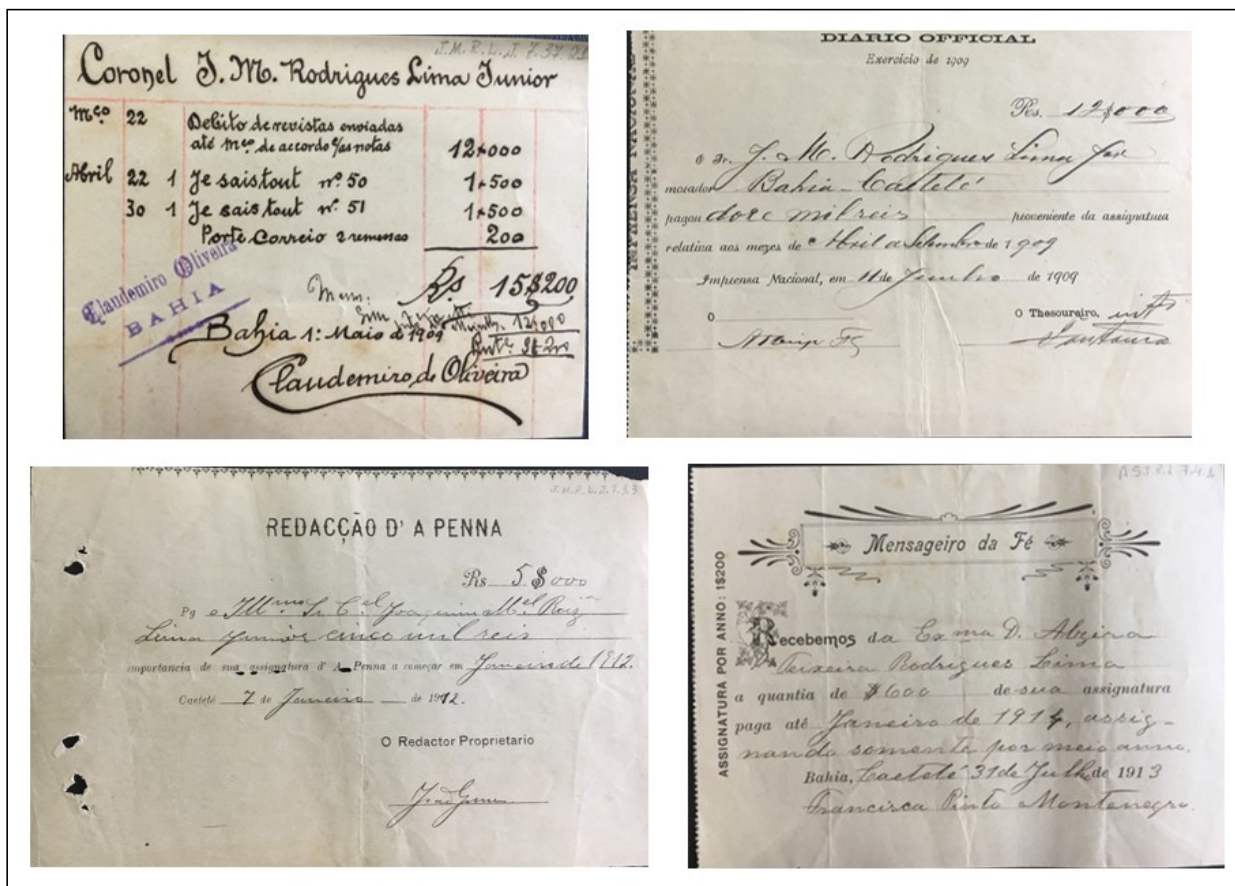 J.M.R.L.J. 7.37.21
Coronel J. M. Rodrigues Lima Junior
Mço 22 Debito de revistas enviadas
até mço de accordo c/as notas 12$000
Abril 22 1 Je sais tout nº 50 1$500
30 1 Je sais tout nº 51 1$500
Porte Correio 2 remessas 200
Rs 15$200
Claudemiro Oliveira
BAHIA
12$000
Bahia 1: Maio de 1909
3$200
Claudemiro de Oliveira
DIARIO OFFICIAL
Exercicio de 1909
IMPRENSA NACIONAL
Rs. 12$000
O Sr. J. M. Rodrigues Lima Jor
morador Bahia - Caeteté
pagou doze mil reis proveniente da assignatura
relativa aos mezes de Abril a Setembro de 1909
Imprensa Nacional, em 11 de Junho de 1909
O O Thesoureiro,
REDACÇÃO D' A PENNA
Rs 5$000
Pg o Illmo Sr. Cel Joaquim Mel Roiz
Lima Junior cinco mil reis
importancia de sua assignatura d' A Penna a começar em Janeiro de 1912.
Caeteté 7 de Janeiro de 1912.
O Redactor Proprietario
João Gumes
Mensageiro da Fé
ASSIGNATURA POR ANNO: 1$200
Recebemos da Exma D. Alzira
Teixeira Rodrigues Lima
a quantia de $600 de sua assignatura
paga até Janeiro de 1914, assig-
nando somente por meio anno.
Bahia, Caeteté 31 de Julh de 1913
Francisca Pinto Montenegro.